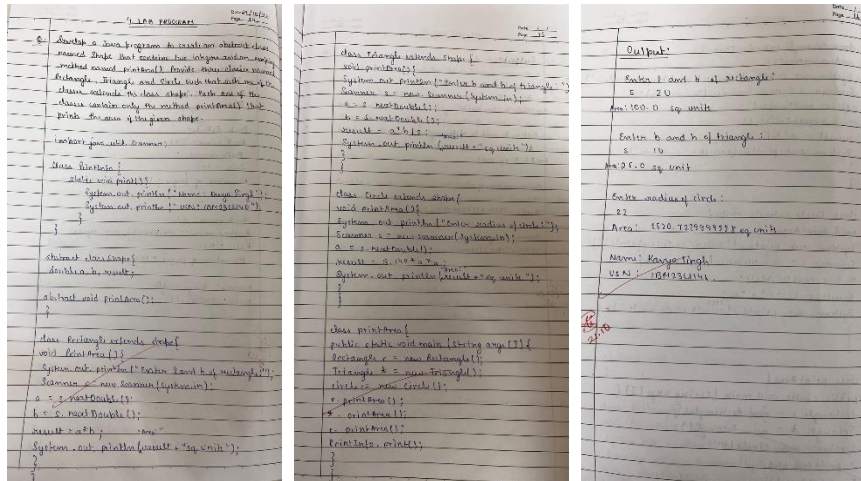 7. LAB PROGRAM
Q Develop a Java program to create an abstract class
named Shape that contain two integers and an empty
method named printArea(). Provide three classes named
Rectangle, Triangle and Circle such that each one of the
classes extends the class shape. Each one of the
classes contain only the method printArea() that
prints the area of the given shape.
import java.util.Scanner;
class PrintInfo {
static void print() {
System.out.println("Name: Kavya Singh");
System.out.println("USN:
}
}
abstract class Shape{
double a, b, result;
abstract void printArea();
}
class Rectangle extends Shape{
void PrintArea(){
System.out.println("Enter l and b of rectangle:");
Scanner s = new Scanner(System.in);
a = s.nextDouble();
b = s.nextDouble();
result = a*b; "Area:"
System.out.println(result + "sq. units");
}
}
class Triangle extends Shape {
void printArea(){
System.out.println("Enter b and h of triangle:");
Scanner s = new Scanner(System.in);
a = s.nextDouble();
b = s.nextDouble();
result = a*b/2; "Area:"
System.out.println(result + "sq. units");
}
}
class Circle extends Shape{
void printArea(){
System.out.println("Enter radius of circle:");
Scanner s = new Scanner(System.in);
a = s.nextDouble();
result = 3.14*a*a; "Area:"
System.out.println(result + "sq. units");
}
}
class printArea{
public static void main (String args[]){
Rectangle r = new Rectangle();
Triangle t = new Triangle();
circle c= new Circle();
r.printArea();
t.printArea();
c.printArea();
PrintInfo.print();
}
}
Output:
Enter l and b of rectangle:
5 20
Area: 100.0 sq units
Enter b and h of triangle:
5 10
Area: 25.0 sq unit
Enter radius of circle:
22
Area: sq units
Name: Kavya Singh
USN: